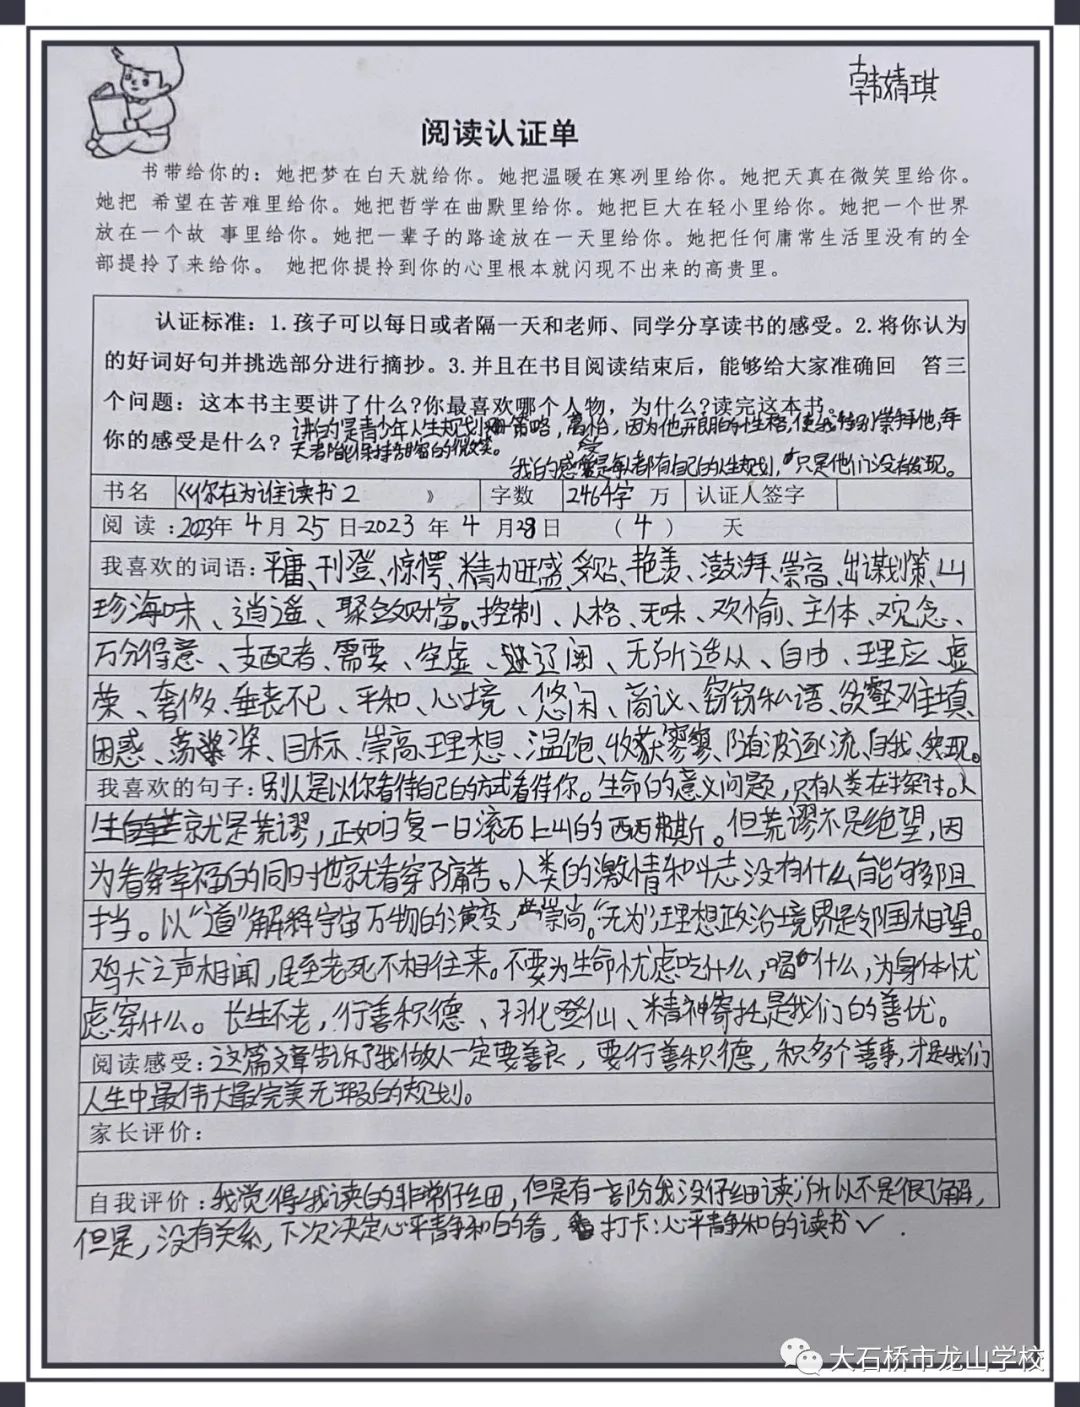 韩婧琪
阅读认证单
书带给你的：她把梦在白天就给你。她把温暖在寒冽里给你。她把天真在微笑里给你。
她把 希望在苦难里给你。她把哲学在幽默里给你。她把巨大在轻小里给你。她把一个世界
放在一个故 事里给你。她把一辈子的路途放在一天里给你。她把任何庸常生活里没有的全
部提拎了来给你。 她把你提拎到你的心里根本就闪现不出来的高贵里。
认证标准：1.孩子可以每日或者隔一天和老师、同学分享读书的感受。2.将你认为
的好词好句并挑选部分进行摘抄。3.并且在书目阅读结束后，能够给大家准确回 答三
个问题：这本书主要讲了什么?你最喜欢哪个人物，为什么?读完这本书。
你的感受是什么? 讲的是青少年人生规划 策略，高怡，因为他开朗的性格，使我特别崇拜他，每
天都能保持 的微笑。
我的感受是每人都有自己的人生规划，只是他们没有发现。
书名 《你在为谁读书2 》 字数 2464字 万 认证人签字
阅 读：2023年 4 月 25 日-2023 年 4 月28日 （4） 天
我喜欢的词语：平庸、刊登、惊愕、精力旺盛、 、艳羡、澎湃、崇高、出谋划策、山
珍海味、逍遥、聚敛财富。控制、人格、无味、欢愉、主体、观念、
万分得意、支配者、需要、空虚、 辽阔、无所适从、自由、理应、虚
荣、奢侈、垂丧不已、平和、心境、悠闲、商议、窃窃私语、欲壑难填、
困惑、 、目标、崇高理想、温饱、收获寥寥、随波逐流、自我、实现。
我喜欢的句子：别人是以你看待自己的方式看待你。生命的意义问题，只有人类在探讨。人
生 就是荒谬，正如日复一日滚石上山的西西弗斯。但荒谬不是绝望，因
为看穿幸福的同时也就看穿了痛苦。人类的激情和斗志没有什么能够阻
挡。以“道”解释宇宙万物的演变，崇尚。“无为”，理想政治境界是邻国相望。
鸡犬之声相闻，民至老死不相往来。不要为生命忧虑吃什么，喝什么，为身体忧
虑穿什么。长生不老，行善积德、羽化登仙、精神寄托是我们的善优。
阅读感受：这篇文章告诉了我做人一定要善良，要行善积德，积多个善事，才是我们
人生中最伟大最完美无瑕的规划。
家长评价：
自我评价：我觉得我读的非常仔细，但是有一部份我没仔细读，所以不是很了解，
但是，没有关系，下次决定心平静和的看，打卡：心平静和的读书✓.
大石桥市龙山学校